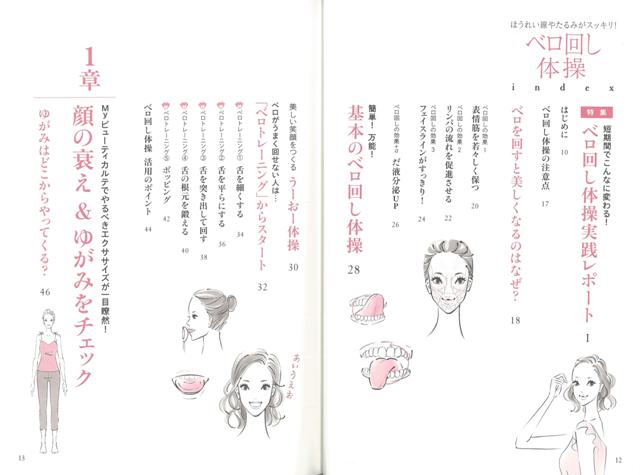 ほうれい線やたるみがスッキリ!
ベロ回し
体操
index
特集
短期間でこんなに変わる!
ベロ回し体操実践レポート 1
はじめに 10
ベロ回し体操の注意点 17
ベロを回すと美しくなるのはなぜ? 18
ベロ回しの効果1
表情筋を若々しく保つ 20
ベロ回しの効果2
リンパの流れを促進させる 22
ベロ回しの効果3
フェイスラインがすっきり! 24
ベロ回しの効果+α
だ液分泌UP 26
簡単!万能!
基本のベロ回し体操 28
12
美しい笑顔をつくる うーおー体操 30
ベロがうまく回せない人は…
「ベロトレーニング」からスタート 32
ベロトレーニング① 舌を細くする 34
ベロトレーニング② 舌を平らにする 36
ベロトレーニング③ 舌を突き出して回す 38
ベロトレーニング④ 舌の根元を鍛える 40
ベロトレーニング⑤ ポッピング 42
ベロ回し体操 活用のポイント 44
あいうえお
1章
Myビューティカルテでやるべきエクササイズが一目瞭然!
顔の衰え&ゆがみをチェック
ゆがみはどこからやってくる? 46
13